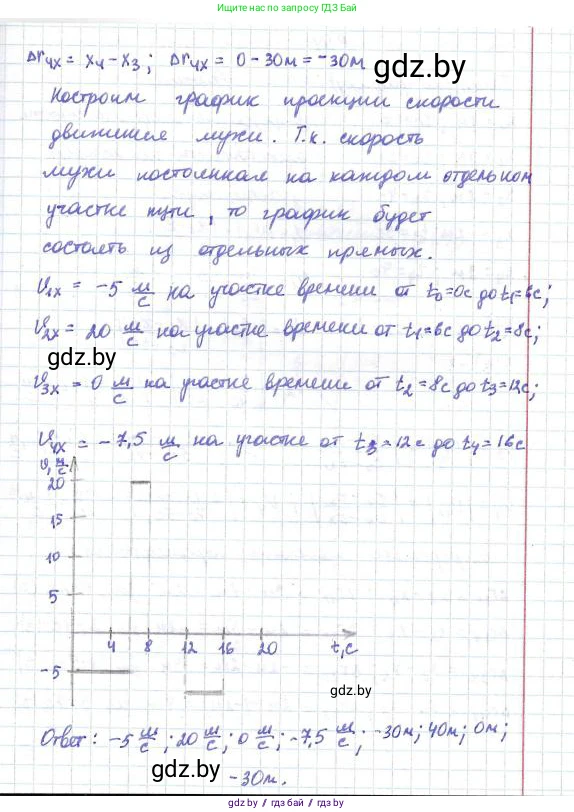 Ищите нас по запросу ГДЗ Бай
Δr₄ₓ = x₄ - x₃; Δr₄ₓ = 0 - 30м = -30м
gdz.by
Построим график проекции скорости
движения мухи. Т.к. скорость
мухи постоянная на каждом отдельном
участке пути, то график будет
состоять из отдельных прямых.
υ₁ₓ = -5 м/с на участке времени от t₀=0с до t₁=6с;
υ₂ₓ = 20 м/с на участке времени от t₁=6с до t₂=8с;
gdz.by
υ₃ₓ = 0 м/с на участке времени от t₂=8с до t₃=12с;
υ₄ₓ = -7,5 м/с на участке от t₃=12с до t₄=16с
υ, м/с
20
15
10
5
4 8 12 16 20 t,с
-5
gdz.by
Ответ: -5 м/с; 20 м/с; 0 м/с; -7,5 м/с; -30м; 40м; 0м;
gdz.by -30м.
gdz.by / гдз бай / гдз.бу